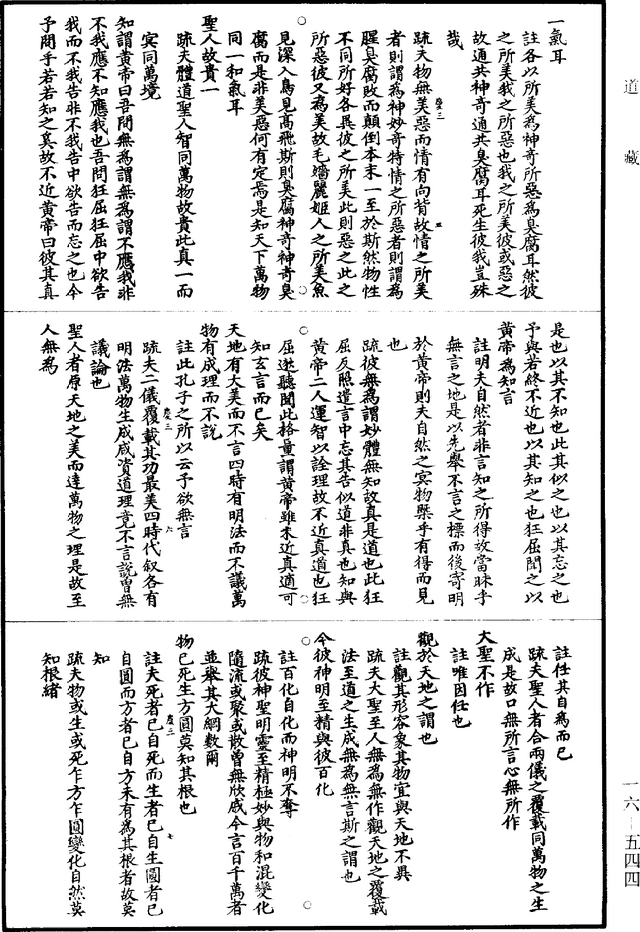 道藏
一氣耳
註各以所美為神奇所惡為臭腐耳然彼
之所美我之所惡也我之所美彼或惡之
故通共神奇通共臭腐耳死生彼我豈殊
哉
疏夫物無美惡而情有向背故情之所美
者則謂為神妙奇特情之所惡者則謂為
腥臭腐敗而顛倒本末一至於斯然物性
不同所好各異彼之所美此則惡之此之
所惡彼又為美故毛嬙麗姬人之所美魚
見深入鳥見高飛斯則臭腐神奇神奇臭
腐而是非美惡何有定焉是知天下萬物
同一和氣耳
聖人故貴一
疏夫體道聖人智同萬物故貴此真一而
冥同萬境
知謂黃帝曰吾問無為謂無為謂不應我非
不我應不知應我也吾問狂屈狂屈中欲告
我而不我告非不我告中欲告而忘之也今
予問乎若若知之奚故不近黃帝曰彼其真
是也以其不知也此其似之也以其忘之也
予與若終不近也以其知之也狂屈聞之以
黃帝為知言
註明夫自然者非言知之所得故當昧乎
無言之地是以先舉不言之標而後寄明
於黃帝則夫自然之冥物槩乎有得而見
也
疏彼無為謂妙體無知故真是道也此狂
屈反照遣言中忘其告似道非真也知與
黃帝二人運智以詮理故不近真道也狂
屈逖聽聞此格量謂黃帝雖未近真適可
知玄言而已矣
天地有大美而不言四時有明法而不議萬
物有成理而不說
註此孔子之所以云予欲無言
疏夫二儀覆載其功最美四時代叙各有
明法萬物生成咸資道理竟不言說曾無
議論也
聖人者原天地之美而達萬物之理是故至
人無為
註任其自為而已
疏夫聖人者合兩儀之覆載同萬物之生
成是故口無所言心無所作
大聖不作
註唯因任也
觀於天地之謂也
註觀其形容象其物宜與天地不異
疏夫大聖至人無為無作觀天地之覆載
法至道之生成無為無言斯之謂也
今彼神明至精與彼百化
註百化自化而神明不奪
疏彼神聖明靈至精極妙與物和混變化
隨流或聚或散曾無欣慼今言百千萬者
並舉其大綱數爾
物已死生方圓莫知其根也
註夫死者已自死而生者已自生圓者已
自圓而方者已自方未有為其根者故莫
知
疏夫物或生或死乍方乍圓變化自然莫
知根緒
一六—五四四